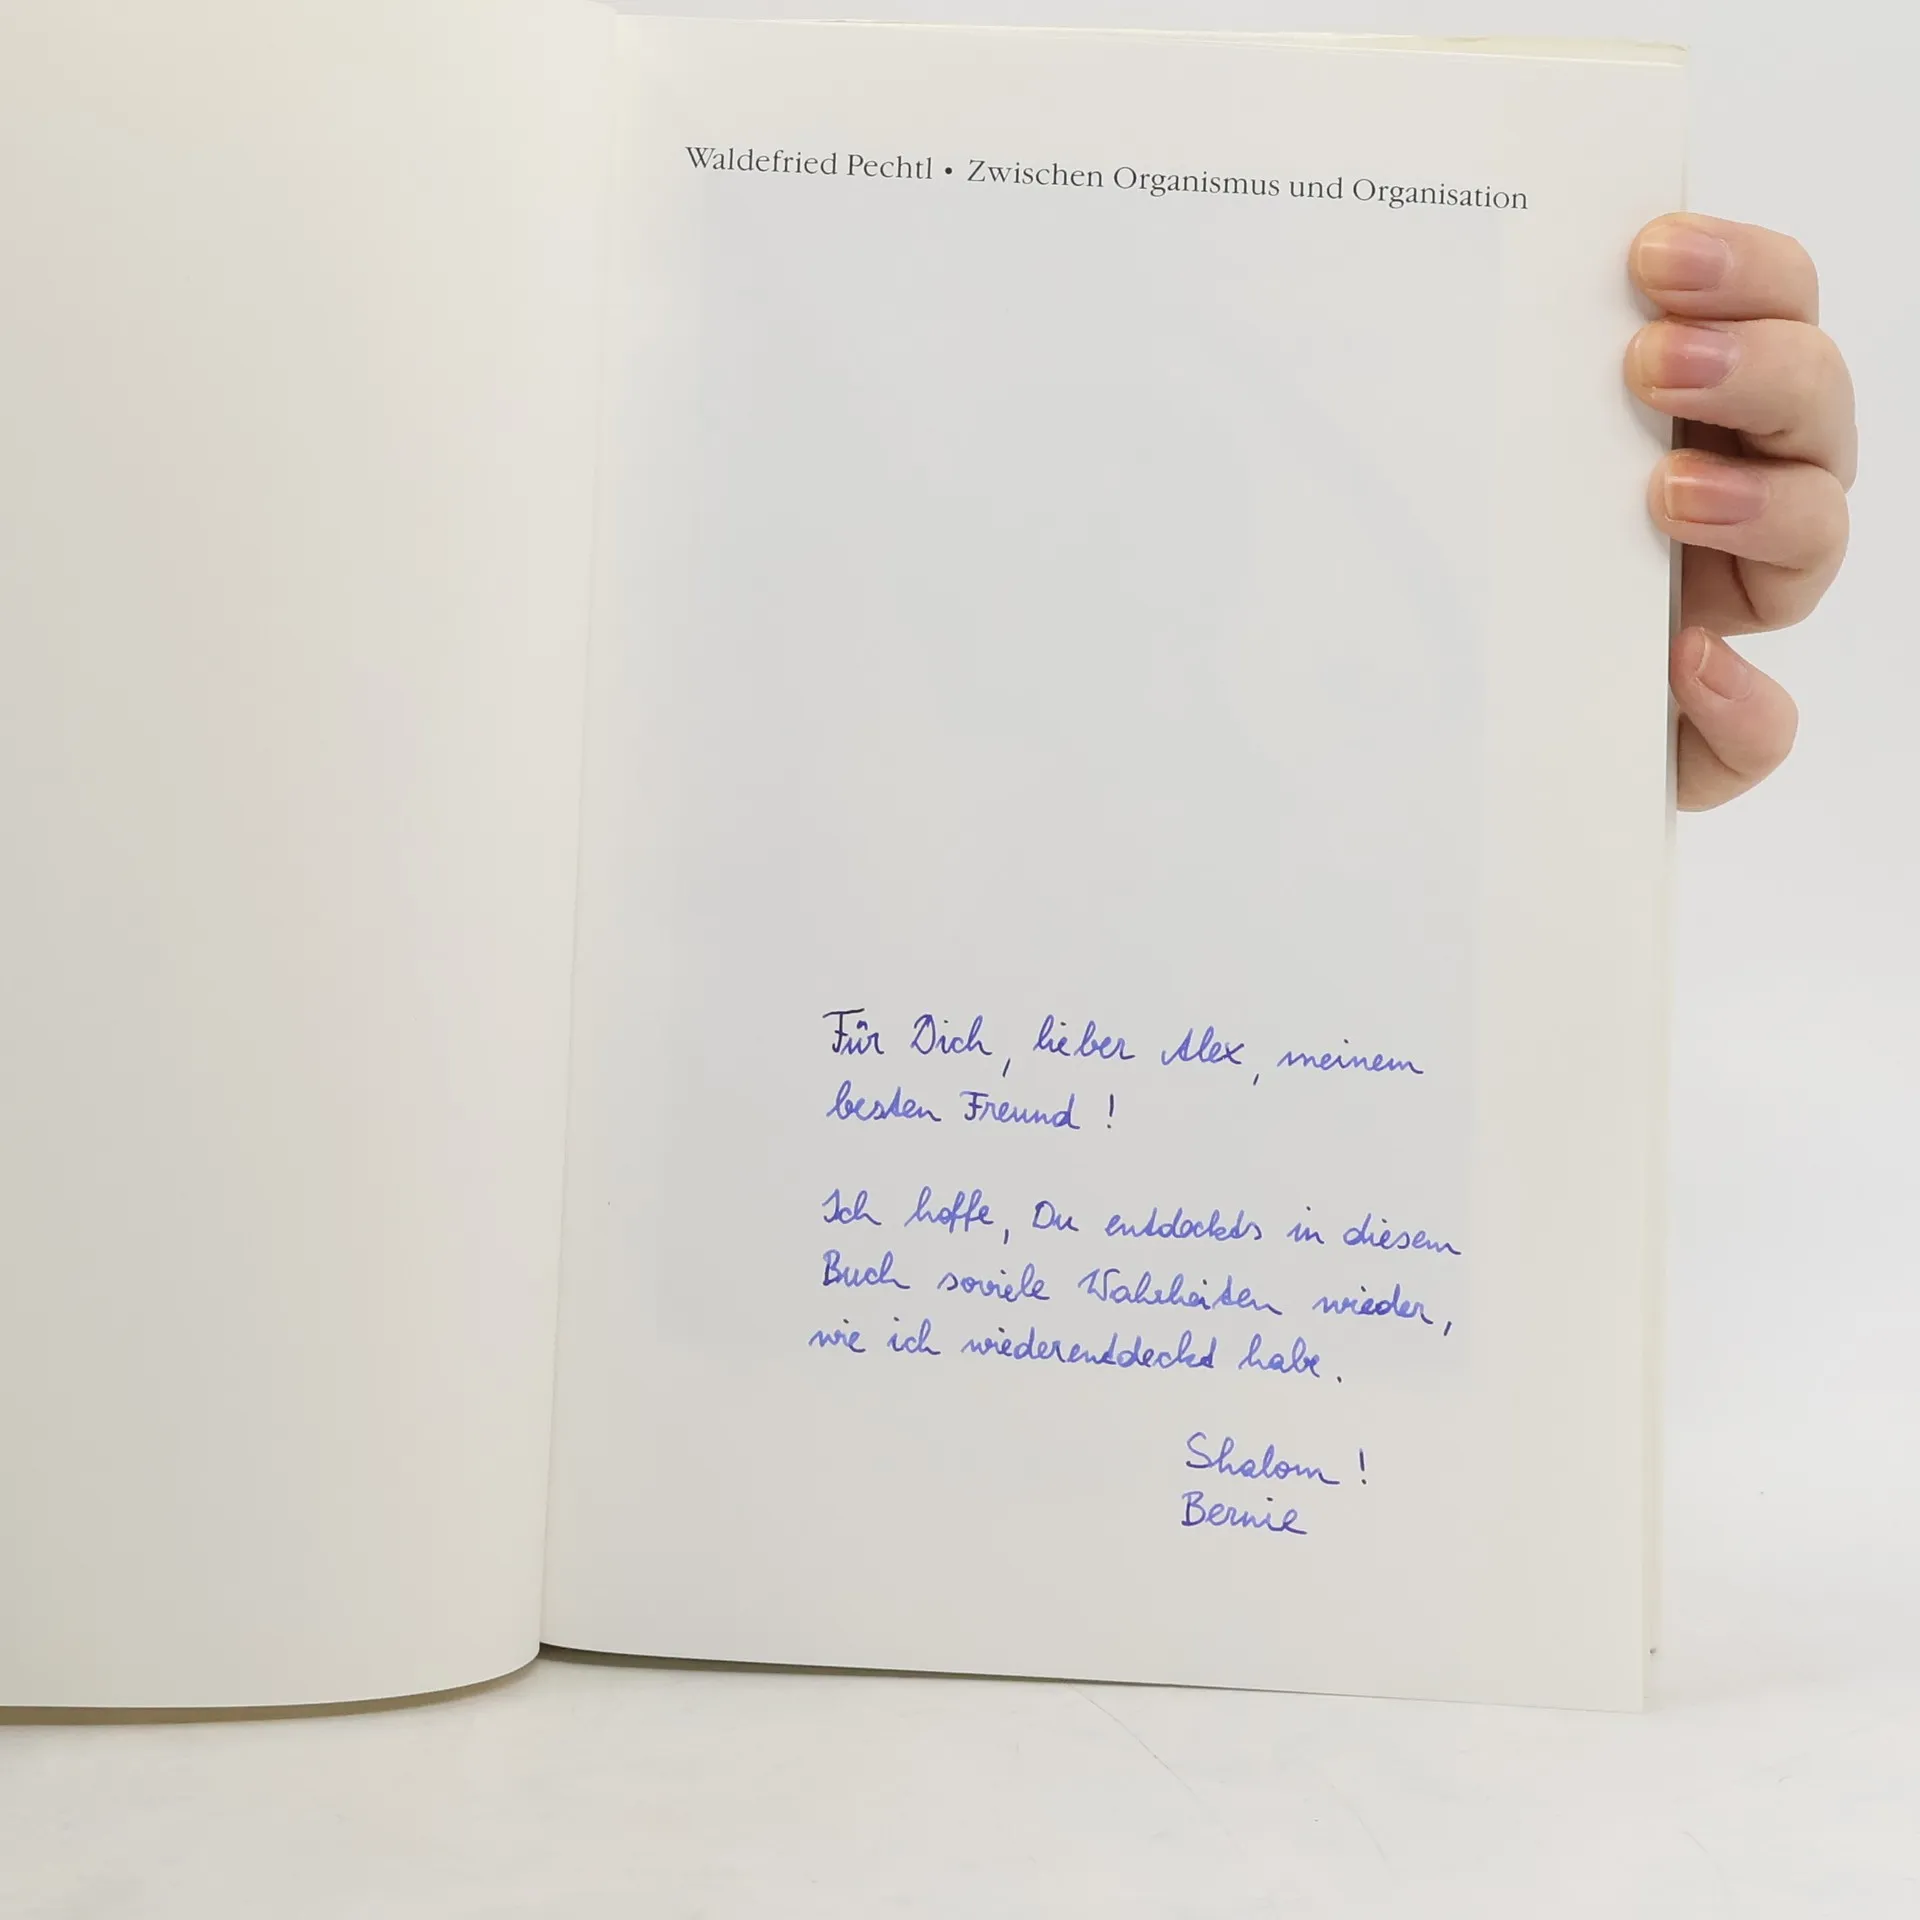 Waldefried Pechtl • Zwischen Organismus und Organisation
Für Dich, lieber Alex, meinem
besten Freund !
Ich hoffe, Du entdeckts in diesem
Buch soviele Wahrheiten wieder,
wie ich wiederentdeckt habe.
Shalom !
Bernie